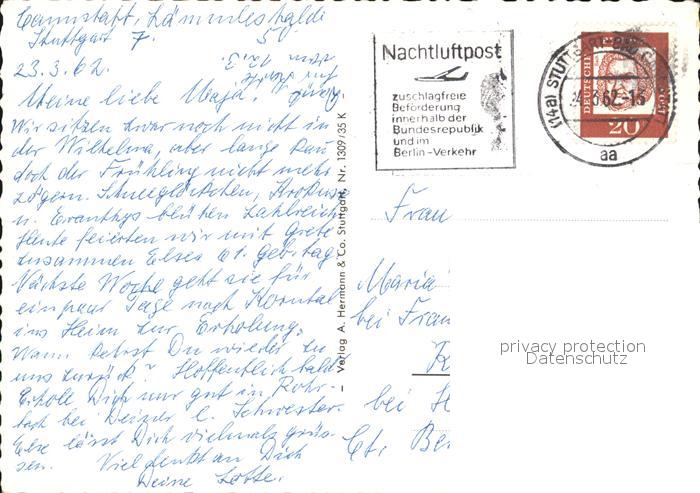 Cannstatt, Lämmleshalde
Stuttgart 7. 50.
23.3.62.
Meine liebe Maja.
Wir sitzen zwar noch nicht in
der Wilhelma, aber lange kann
doch der Frühling nicht mehr
zögern. Schneeglöckchen, Krokuss
u. Eranthys blühen zahlreich
Heute feierten wir mit Grete
zusammen Elses 61. Geb.tag
Nächste Woche geht sie für
ein paar Tage nach Korntal
ins Heim zur Erholung.
Wann kehrst Du wieder zu
uns zurück? Hoffentlich bald
Erhole Dich nur gut in Rohr-
bach bei Deiner l. Schwester.
Else lässt Dich vielmals grüs-
sen. Viel denkt an Dich
Deine Lotte.
– Verlag A. Hermann & Co. Stuttgart, Nr. 1309/35 K –
Nachtluftpost
zuschlagfreie
Beförderung
innerhalb der
Bundesrepublik
und im
Berlin-Verkehr
(14a) STUTTGART-BAD C
62.-15
aa
DEUTSCHE
POST
20
Frau
Maria
bei Frau
K
bei H
Ct. Be
privacy protection
Datenschutz